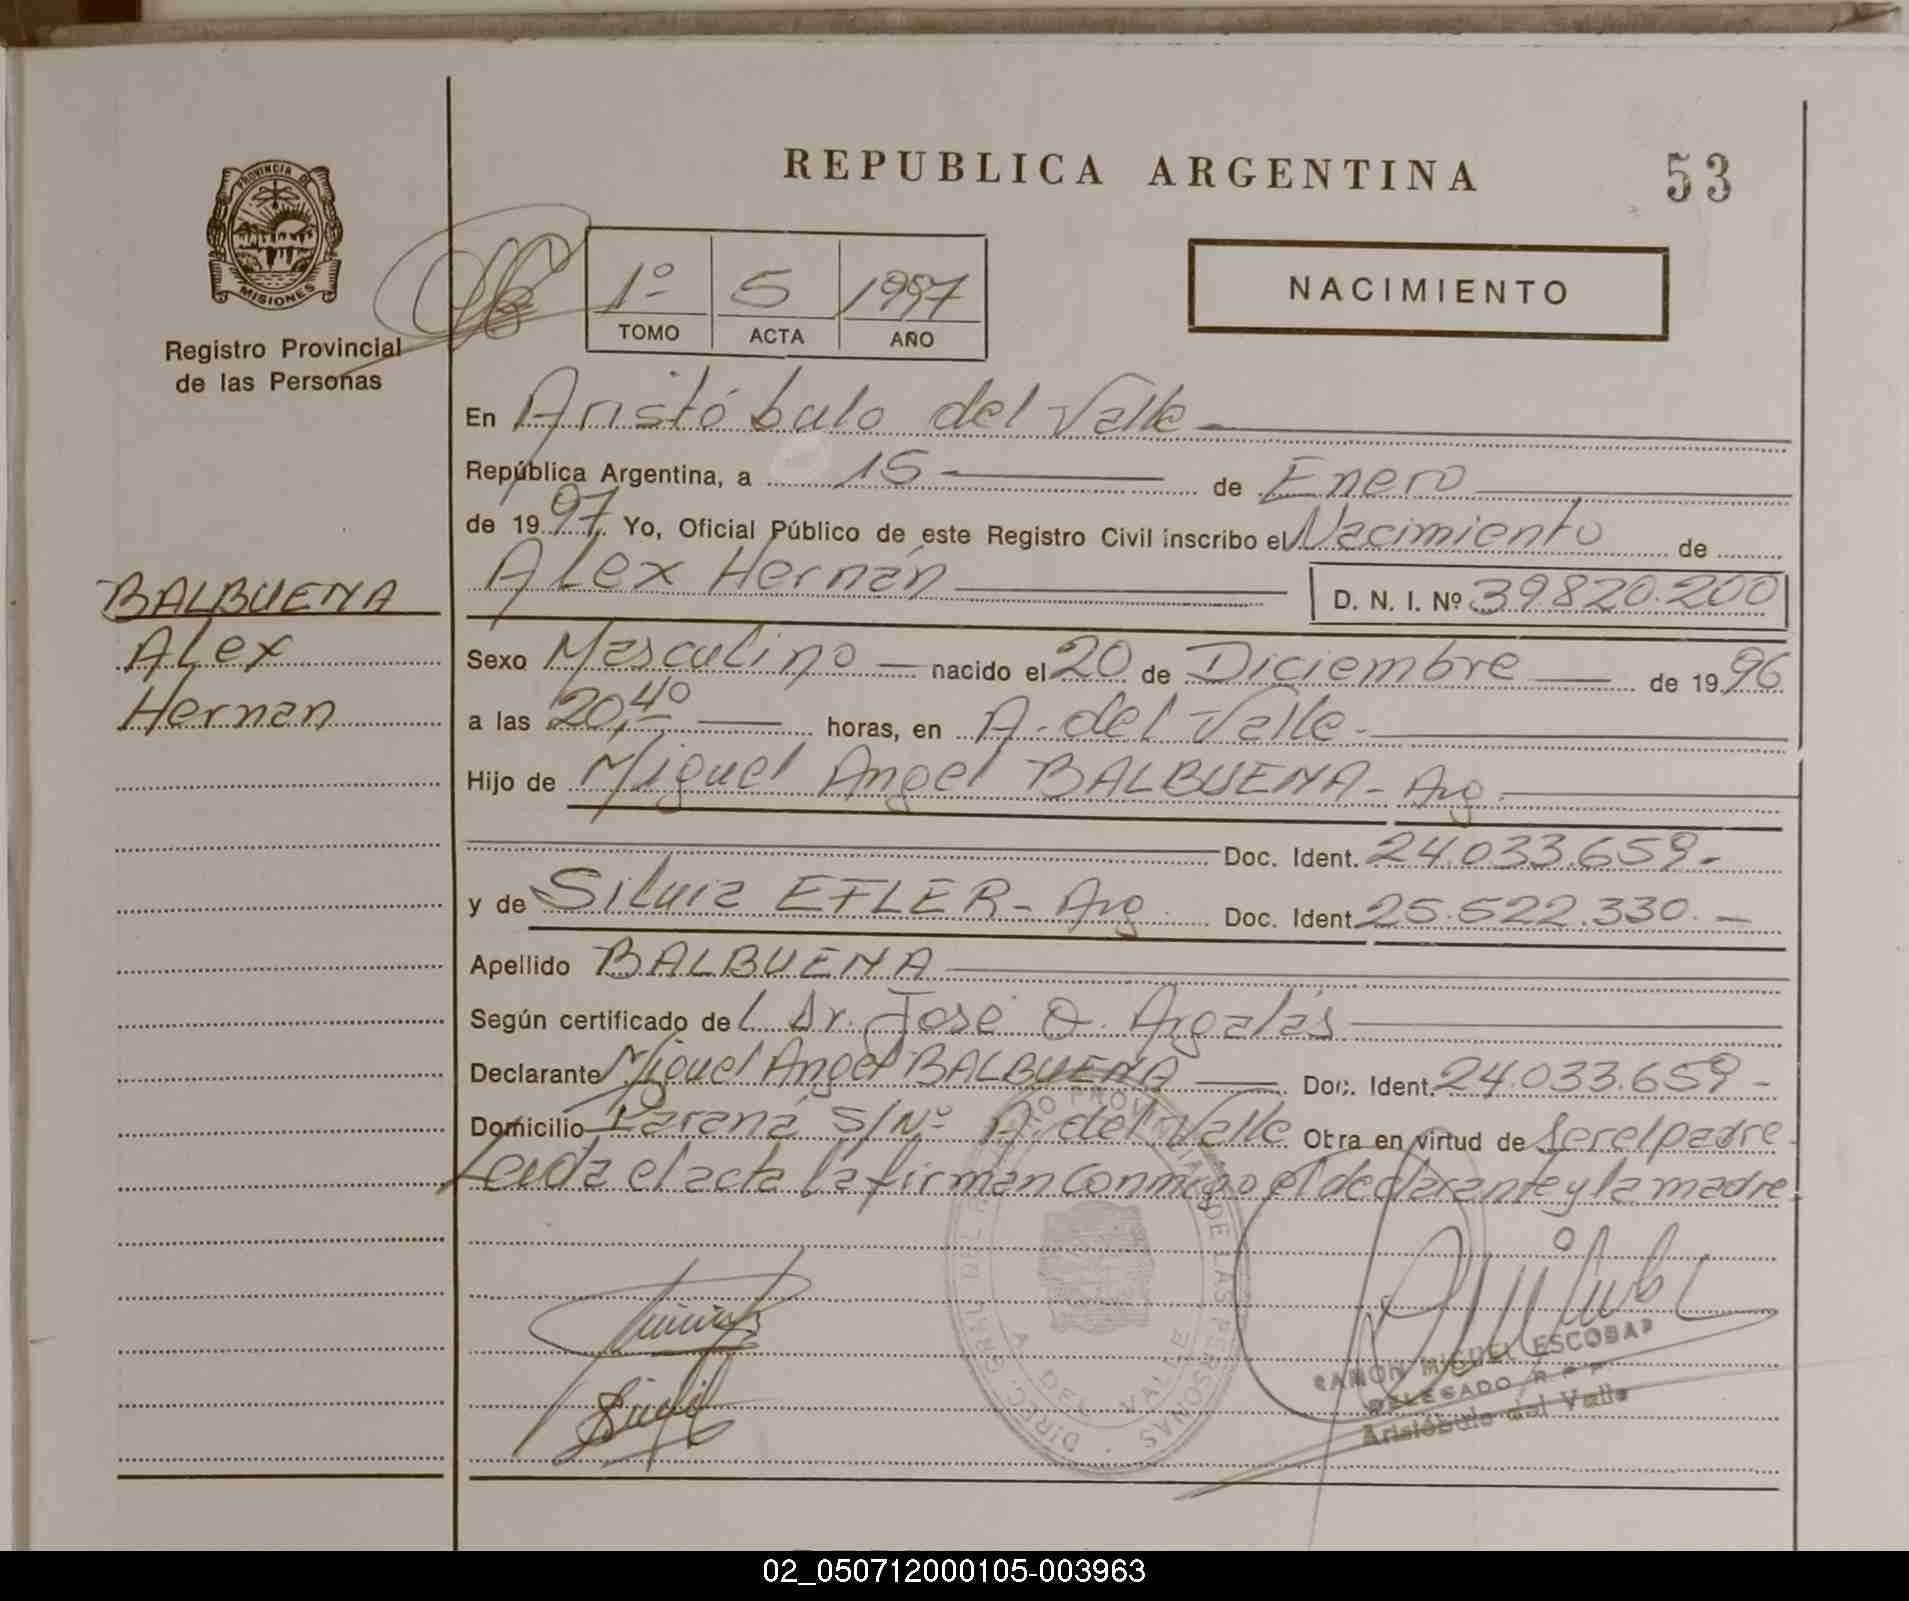 REPUBLICA ARGENTINA
53
PROVINCIA DE
MISIONES
Registro Provincial
de las Personas
1º 5 1997
TOMO ACTA AÑO
NACIMIENTO
En Aristóbulo del Valle
República Argentina, a 15 de Enero
de 1997. Yo, Oficial Público de este Registro Civil inscribo el Nacimiento de
Alex Hernán D. N. I. Nº 39820.200
BALBUENA
Alex
Hernan
Sexo Masculino nacido el 20 de Diciembre de 1996
a las 20,40 horas, en A. del Valle.
Hijo de Miguel Angel BALBUENA - Arg.
Doc. Ident. 24.033.659.-
y de Silvia EFLER - Arg. Doc. Ident. 25.522.330.-
Apellido BALBUENA
Según certificado del Dr. José O. Argalás
Declarante Miguel Angel BALBUENA Doc. Ident. 24.033.659-
Domicilio Paraná S/Nº A. del Valle Obra en virtud de ser el padre.
Leida el acta la firman conmigo el declarante y la madre.
DIREC. GRAL. DEL REGISTRO PROVINCIAL DE LAS PERSONAS
A. DEL VALLE
RAMON MIGUEL ESCOBAR
DELEGADO R.P.P.
Aristóbulo del Valle
02_050712000105-003963